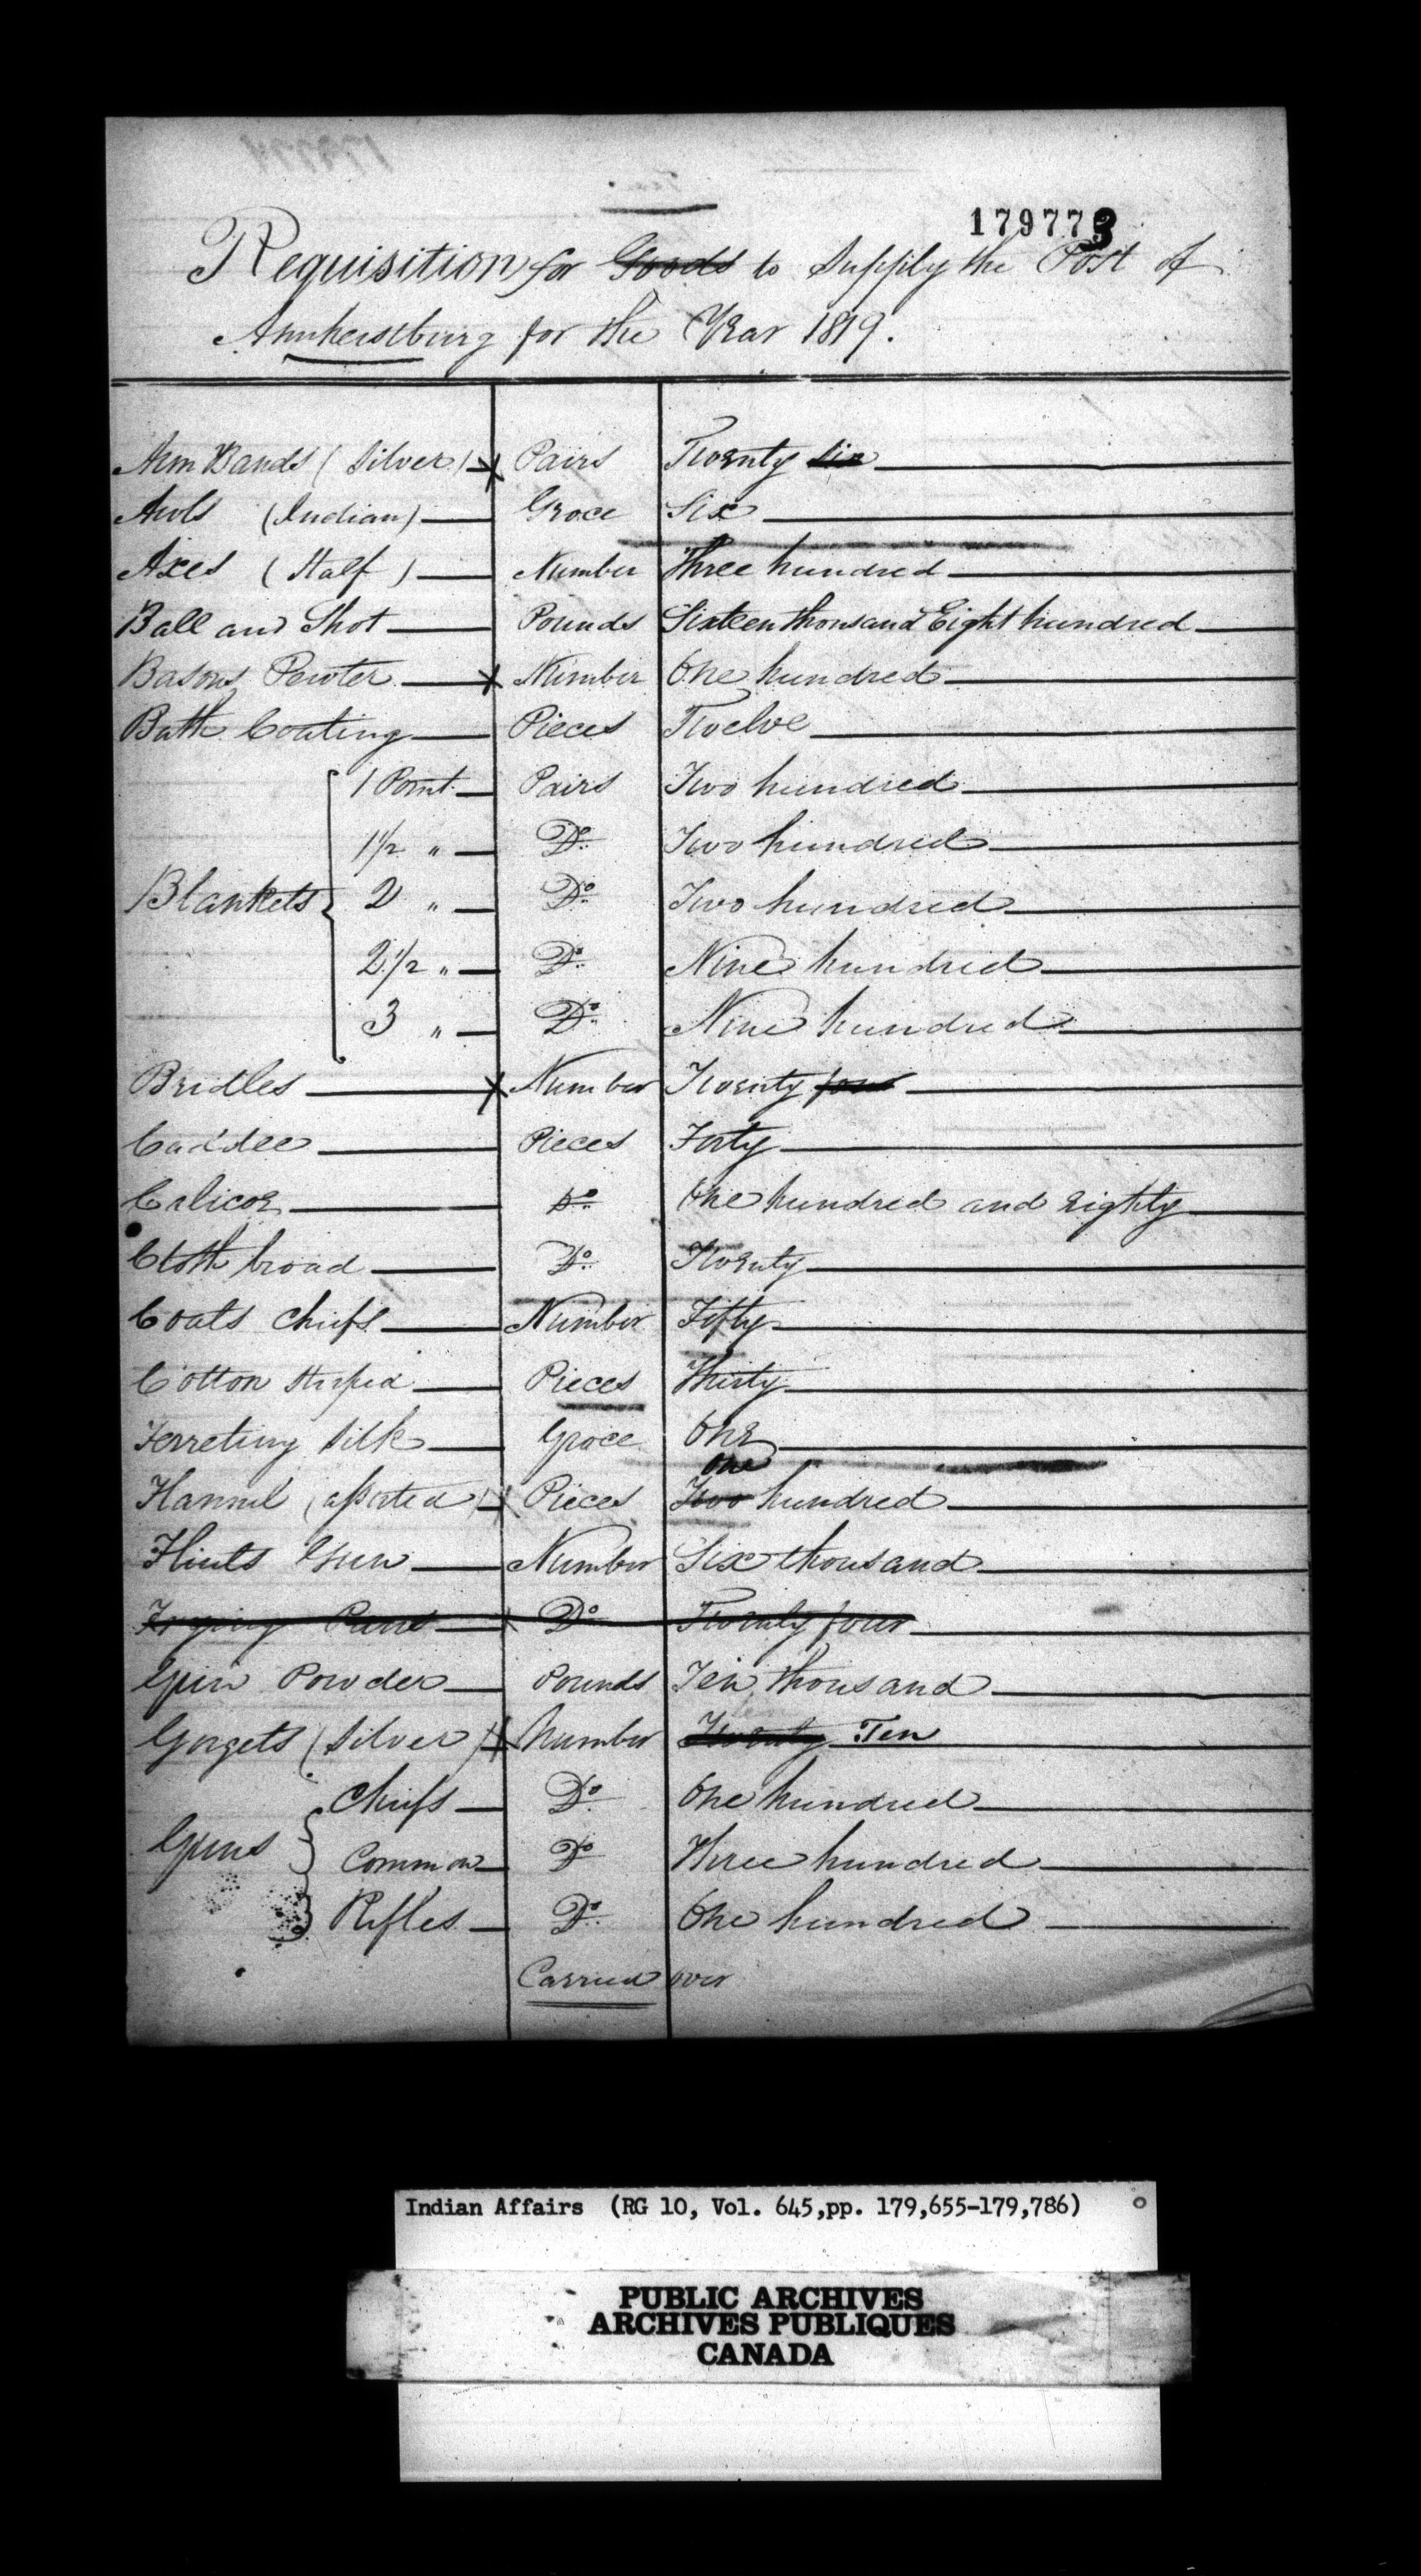 179773
Requisition for Goods to Supply the Post of
Amherstburg for the Year 1819.
Arm Bands (Silver) x Pairs Twenty six
Awls (Indian) Groce Six
Axes (Half) Number Three hundred
Ball and Shot Pounds Sixteen thousand Eight hundred
Basons Pewter x Number One hundred
Bath Coating Pieces Twelve
1 Point Pairs Two hundred
1½ " Do Two hundred
Blankets { 2 " Do Two hundred
2½ " Do Nine hundred
3 " Do Nine hundred
Bridles x Number Twenty four
Caddee Pieces Forty
Calicoe Do One hundred and Eighty
Cloth broad Do Twenty
Coats Chiefs Number Fifty
Cotton Striped Pieces Thirty
Ferreting Silk Groce One
one
Flannel (assorted) x Pieces Two hundred
Flints Gun Number Six thousand
Frying Pans x Do Twenty four
Gun Powder Pounds Ten thousand
Gorgets (Silver) x Number Twenty Ten
Chiefs Do One hundred
Guns } Common Do Three hundred
Rifles Do One hundred
Carried over
Indian Affairs (RG 10, Vol. 645,pp. 179,655-179,786)
PUBLIC ARCHIVES
ARCHIVES PUBLIQUES
CANADA